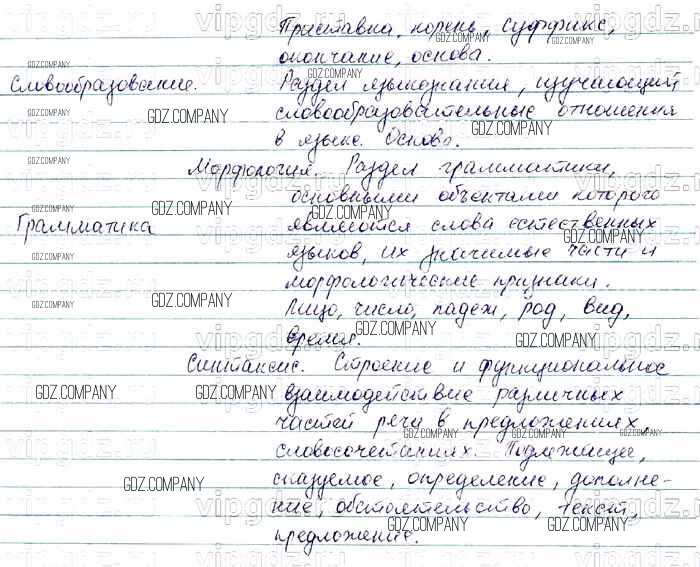 Приставка, корень, суффикс,
окончание, основа.
Словообразование. Раздел языкознания, изучающий
словообразовательные отношения
в языке. Основа.
Морфология. Раздел грамматики,
основными объектами которого
Грамматика являются слова естественных
языков, их значимые части и
морфологические признаки.
Лицо, число, падеж, род, вид,
время.
Синтаксис. Строение и функциональное
взаимодействие различных
частей речи в предложениях,
словосочетаниях. Подлежащее,
сказуемое, определение, дополне-
ние, обстоятельство, текст,
предложение.